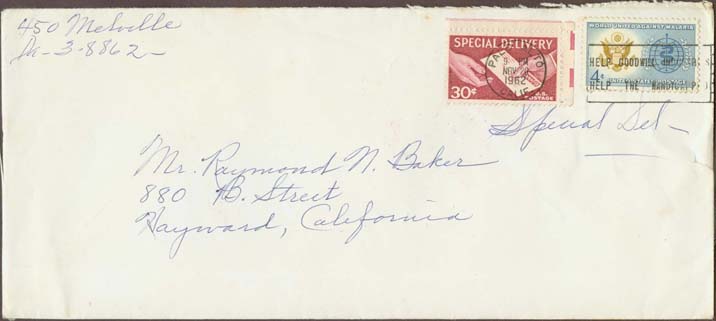 450 Melville
Da-3-8862-
SPECIAL DELIVERY
30¢
U.S. POSTAGE
PALO ALTO
9 PM
NOV 28
1962
CALIF.
WORLD UNITED AGAINST MALARIA
4¢
UNITED STATES POSTAGE
HELP GOODWILL INDUSTRIES
HELP THE HANDICAPPED
Special Del-
Mr. Raymond N. Baker
880 B. Street
Hayward, California